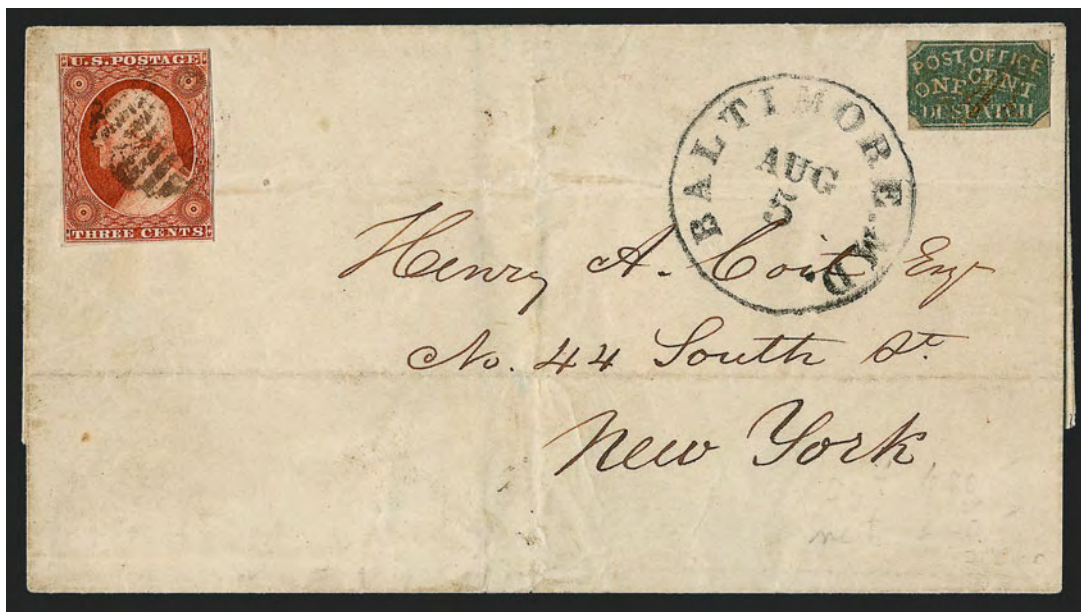 U.S. POSTAGE
THREE CENTS
POST OFFICE
ONE CENT
DESPATCH
BALTIMORE Md.
AUG
5
Henry A. Coit Esqr
No. 44 South St.
New York